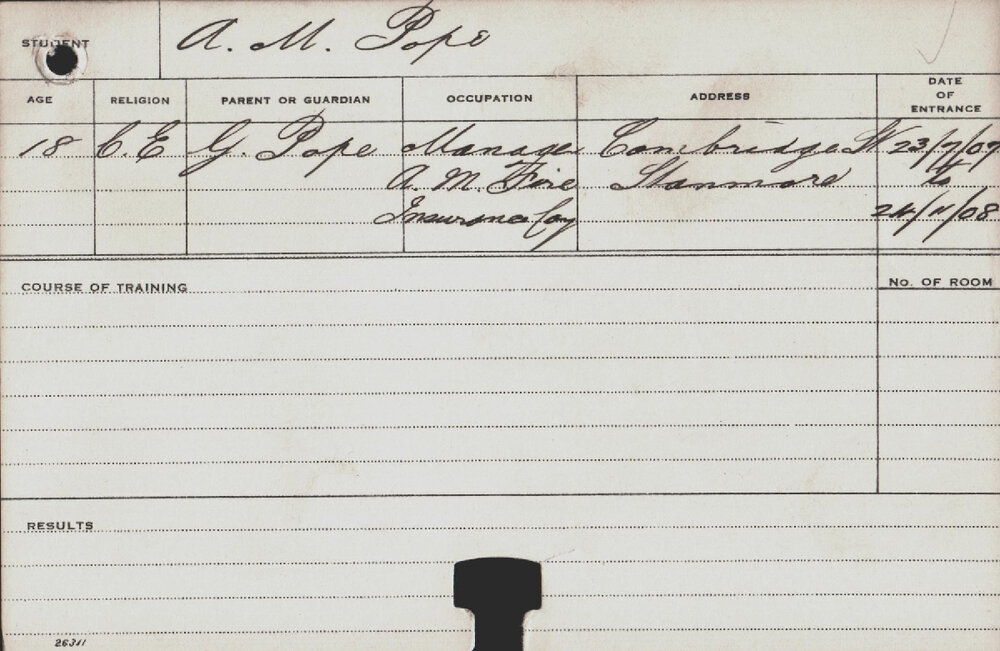 STUDENT A. M. Pope
AGE RELIGION PARENT OR GUARDIAN OCCUPATION ADDRESS DATE OF ENTRANCE
18 C.E G. Pope Manager Cambridge St 23/7/07
A. M. Fire Stanmore to
Insurance Coy 24/11/08
COURSE OF TRAINING No. OF ROOM
RESULTS
26311